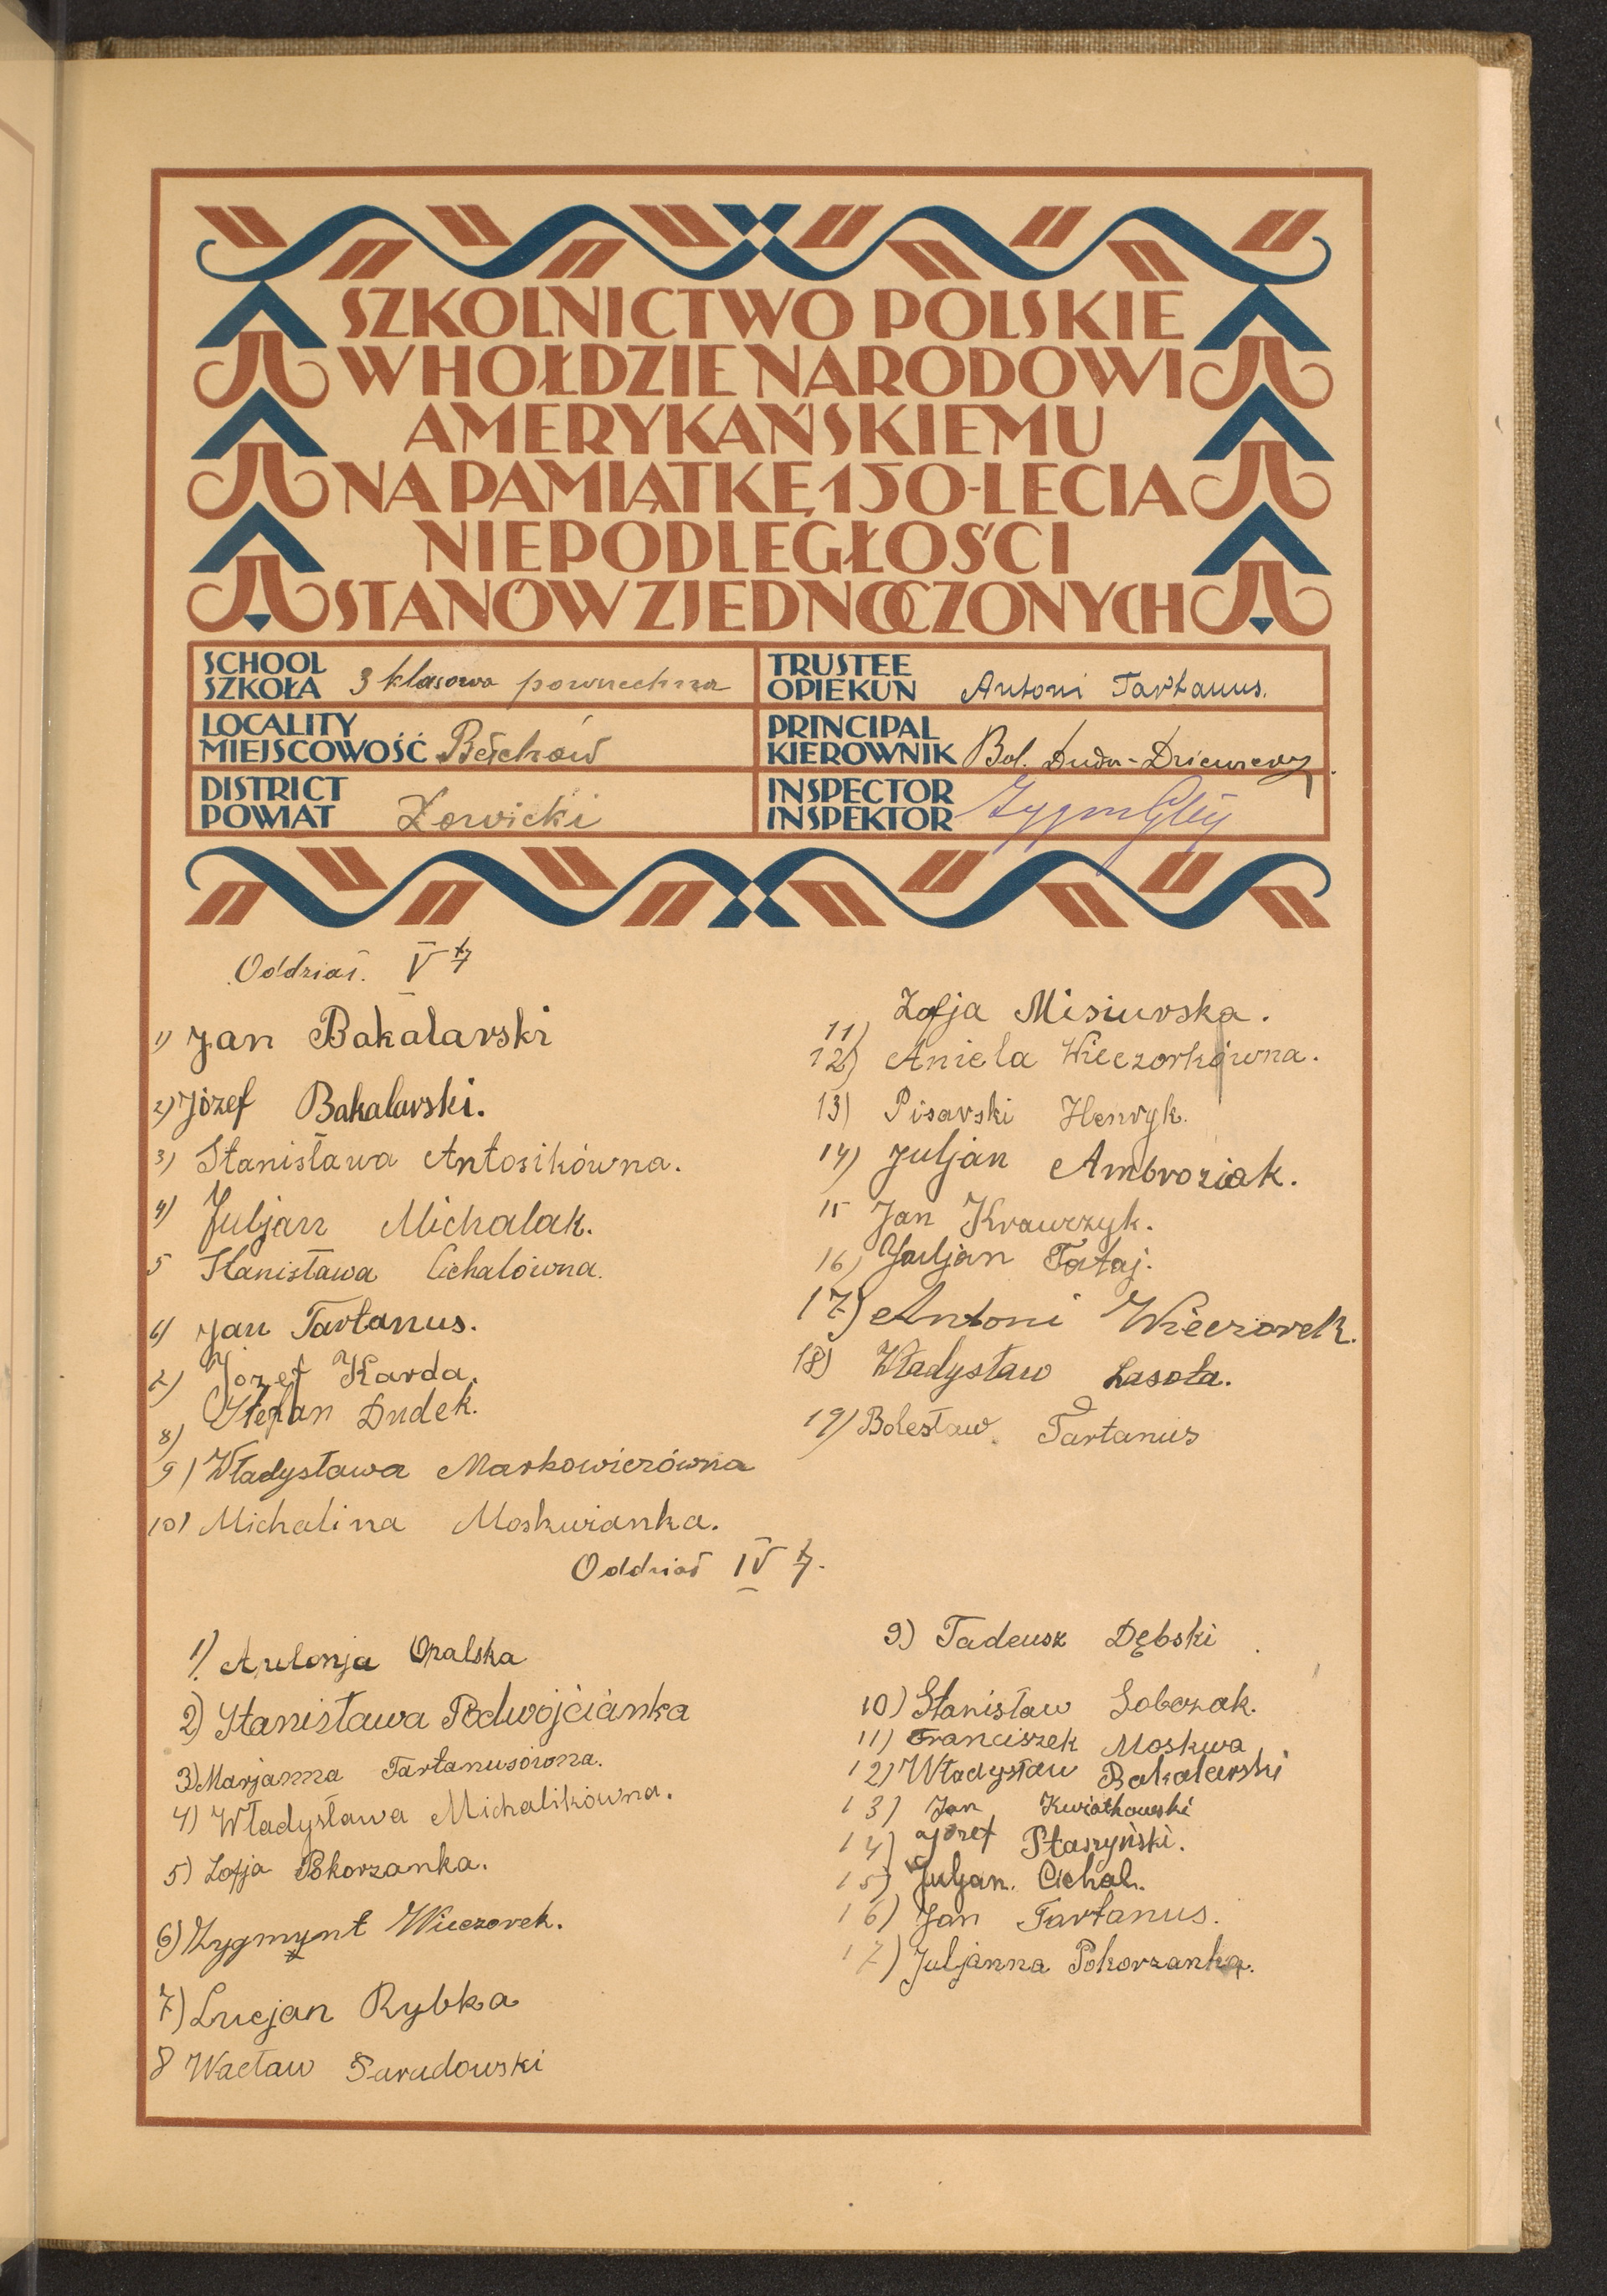 SZKOLNICTWO POLSKIE
W HOŁDZIE NARODOWI
AMERYKAŃSKIEMU
NA PAMIĄTKĘ 150-LECIA
NIEPODLEGŁOŚCI
STANÓW ZJEDNOCZONYCH
SCHOOL
SZKOŁA 3 klasowa powszechna
TRUSTEE
OPIEKUN Antoni Tartanus.
LOCALITY
MIEJSCOWOŚĆ Bełchów
PRINCIPAL
KIEROWNIK Bol. Duda-
DISTRICT
POWIAT Łowicki
INSPECTOR
INSPEKTOR
Oddział. V ty
1) Jan Bakalarski
2) Józef Bakalarski.
3) Stanisława Antosikówna.
4) Juljan Michalak.
5 Stanisława Cichalówna.
6) Jan Tartanus.
7) Józef Karda.
8) Stefan Dudek.
9) Władysława Markowiczówna
10) Michalina Moskwianka.
11) Zofja Misiurska.
12) Aniela Wieczorkówna.
13) Pisarski Henryk.
14) Juljan Ambroziak.
15 Jan Krawczyk.
16) Juljan Tataj.
17) Antoni Wieczorek.
18) Władysław Lasota.
19) Bolesław Tartanus
Oddział IV ty.
1) Antonja Opalska
2) Stanisława Podwójcianka
3) Marjanna Tartanusówna.
4) Władysława Michalikówna.
5) Zofja Pokorzanka.
6) Zygmynt Wieczorek.
7) Lucjan Rybka
8 Wacław Saradowski
9) Tadeusz Dębski
10) Stanisław Sobczak.
11) Franciszek Moskwa
12) Władysław Bakalarski
13) Jan Kwiatkowski
14) Józef Ptaszyński.
15) Juljan. Cichal.
16) Jan Tartanus.
17) Juljanna Pokorzanka.